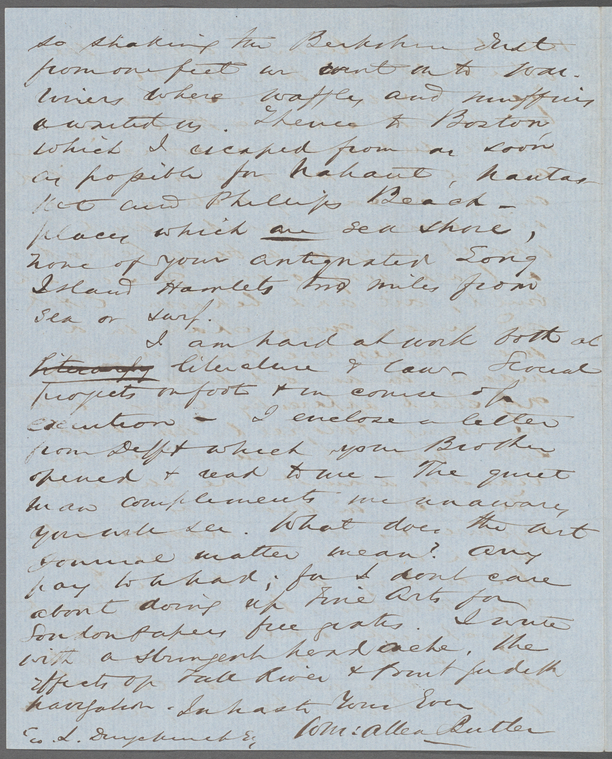 so shaking the Berkshire dust
from our feet we went on to War-
riners where waffles and muffins
awaited us. Thence to Boston,
which I escaped from as soon
as possible for Nahant, Nantas-
ket and Phillips Beach –
places which are sea shore,
none of your antiquated Long
Island Hamlets two miles from
sea or surf.
I am hard at work both at
literature & law – Several
projects on foot & in course of
execution – I enclose a letter
from Defft which your Brother
opened & read to me – The quiet
man complements me unawares
you will see. What does the Art
Journal matter mean? Any
pay to be had; for I dont care
about doing up Fine Arts for
London papers free gratis. I write
with a stringent head ache, the
effects of Fall River & Point Judith
navigation. In haste Yours Ever
Wm: Allen Butler
Duyckinck Esq